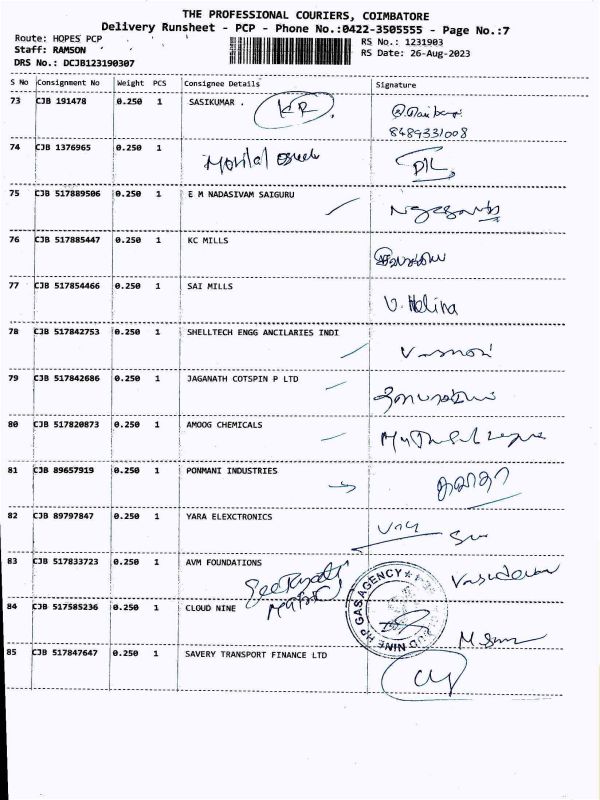 THE PROFESSIONAL COURIERS, COIMBATORE
Delivery Runsheet - PCP - Phone No.:0422-3505555 - Page No.:7
Route: HOPES PCP
RS No.: 1231903
Staff: RAMSON
RS Date: 26-Aug-2023
DRS No.: DCJB123190307
S No Consignment No Weight PCS Consignee Details Signature
73 CJB 191478 0.250 1 SASIKUMAR . KR
8489331008
74 CJB 1376965 0.250 1
75 CJB 517889506 0.250 1 E M NADASIVAM SAIGURU
76 CJB 517885447 0.250 1 KC MILLS
77 CJB 517854466 0.250 1 SAI MILLS
V. Helina
78 CJB 517842753 0.250 1 SHELLTECH ENGG ANCILARIES INDI
79 CJB 517842686 0.250 1 JAGANATH COTSPIN P LTD
80 CJB 517820873 0.250 1 AMOOG CHEMICALS
81 CJB 89657919 0.250 1 PONMANI INDUSTRIES
82 CJB 89797847 0.250 1 YARA ELEXCTRONICS
83 CJB 517833723 0.250 1 AVM FOUNDATIONS
Vasudevan
84 CJB 517585236 0.250 1 CLOUD NINE
CLOUD NINE H.P. GAS AGENCY
85 CJB 517847647 0.250 1 SAVERY TRANSPORT FINANCE LTD